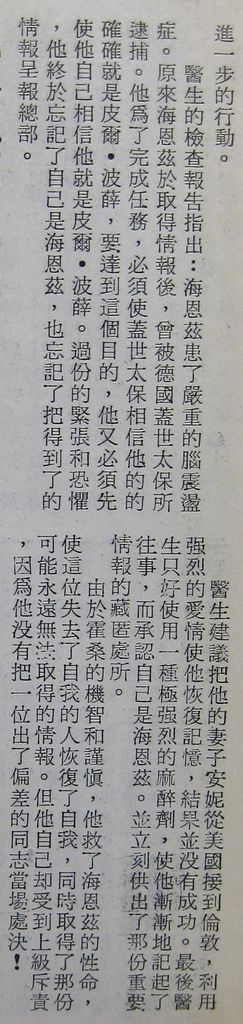 進一步的行動。
醫生的檢查報告指出：海恩茲患了嚴重的腦震盪
症。原來海恩茲於取得情報後，曾被德國蓋世太保所
逮捕。他爲了完成任務，必須使蓋世太保相信他的的
確確就是皮爾•波薛，要達到這個目的，他又必須先
使他自己相信他就是皮爾•波薛。過份的緊張和恐懼
，他終於忘記了自己是海恩茲，也忘記了把得到了的
情報呈報總部。
醫生建議把他的妻子安妮從美國接到倫敦，利用
强烈的愛情使他恢復記憶，結果並没有成功。最後醫
生只好使用一種極强烈的麻醉劑，使他漸漸地記起了
往事，而承認自己是海恩茲。並立刻供出了那份重要
情報的藏匿處所。
由於霍桑的機智和謹愼，他救了海恩茲的性命，
使這位失去了自我的人恢復了自我，同時取得了那份
可能永遠無法取得的情報。但他自己却受到上級斥責
，因爲他没有把一位出了偏差的同志當場處決！